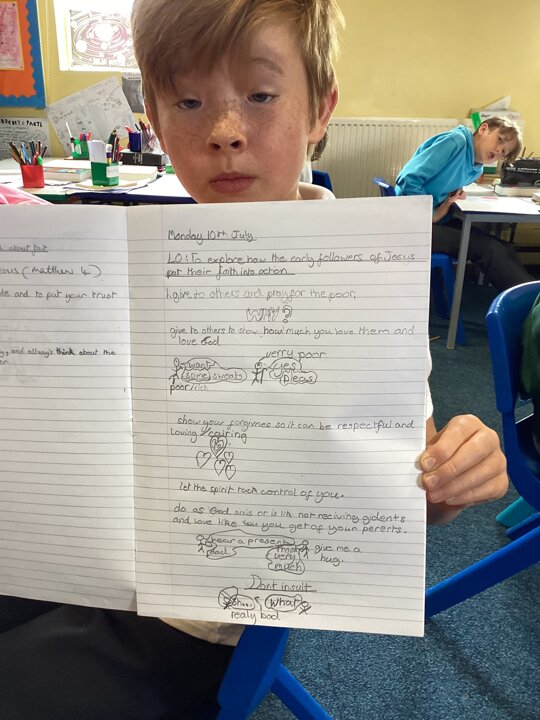 about
(Matthew 4)
and to put your trust
and allways think about the
Monday 10th July
LO: To explore how the early followers of Jesus
put their faith into action
give to others and pray for the poor,
WHY?
give to others to show how much you love them and
love God
want
some sweats
poor
verry poor
yes
pleas
show your forgivnes so it can be respectful and
Loving
let the spirit control of you.
do as God sais or is like not reciving
and love like you get of your perents.
hear a present
Dad
very
much
give me a
hug.
Dont insult
what
realy bad